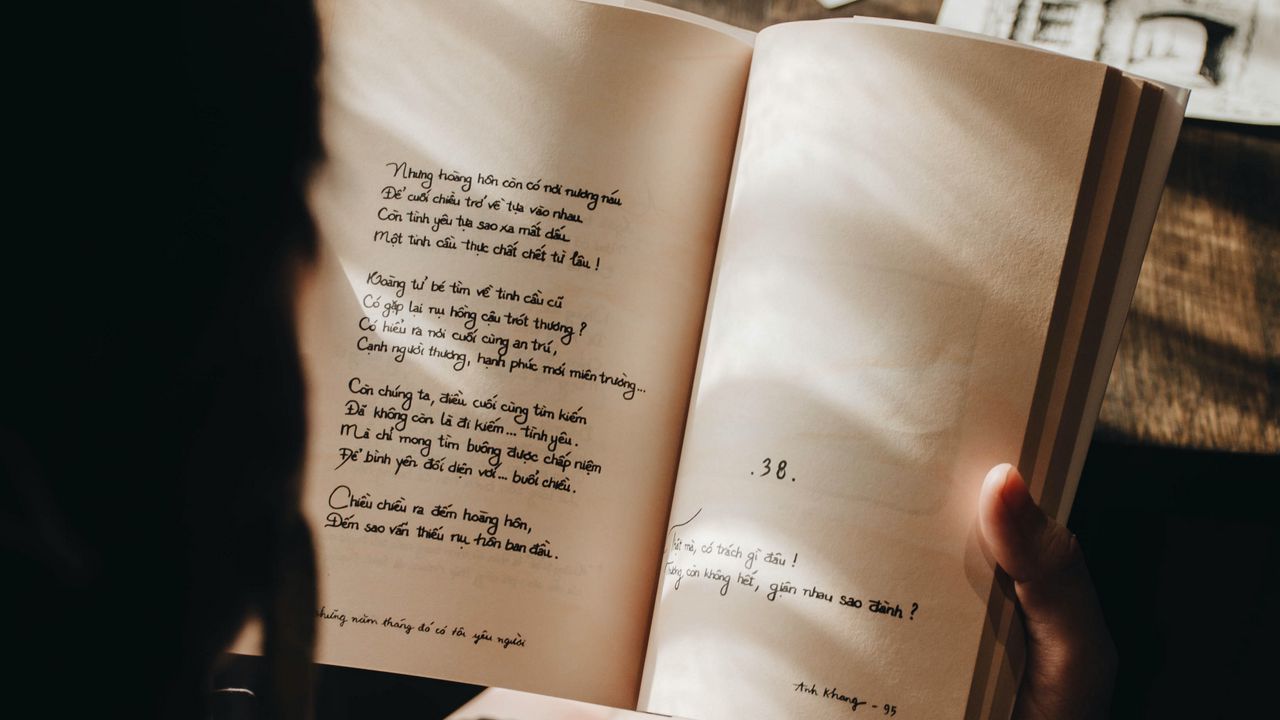 Nhưng hoàng hôn còn có nơi nương náu
Để cuối chiều trở về tựa vào nhau.
Còn tình yêu tựa sao xa mất dấu
Một tinh cầu thực chất chết từ lâu !
Hoàng tử bé tìm về tinh cầu cũ
Có gặp lại nụ hồng cậu trót thương ?
Có hiểu ra nơi cuối cùng an trú,
Cạnh người thương, hạnh phúc mới miên trường...
Còn chúng ta, điều cuối cùng tìm kiếm
Đã không còn là đi kiếm... tình yêu.
Mà chỉ mong tìm buông được chấp niệm
Để bình yên đối diện với... buổi chiều.
Chiều chiều ra đếm hoàng hôn,
Đếm sao vẫn thiếu nụ hôn ban đầu.
những năm tháng đó có tôi yêu người
.38.
Thật mà, có trách gì đâu !
Thương còn không hết, giận nhau sao đành ?
Anh Khang - 95